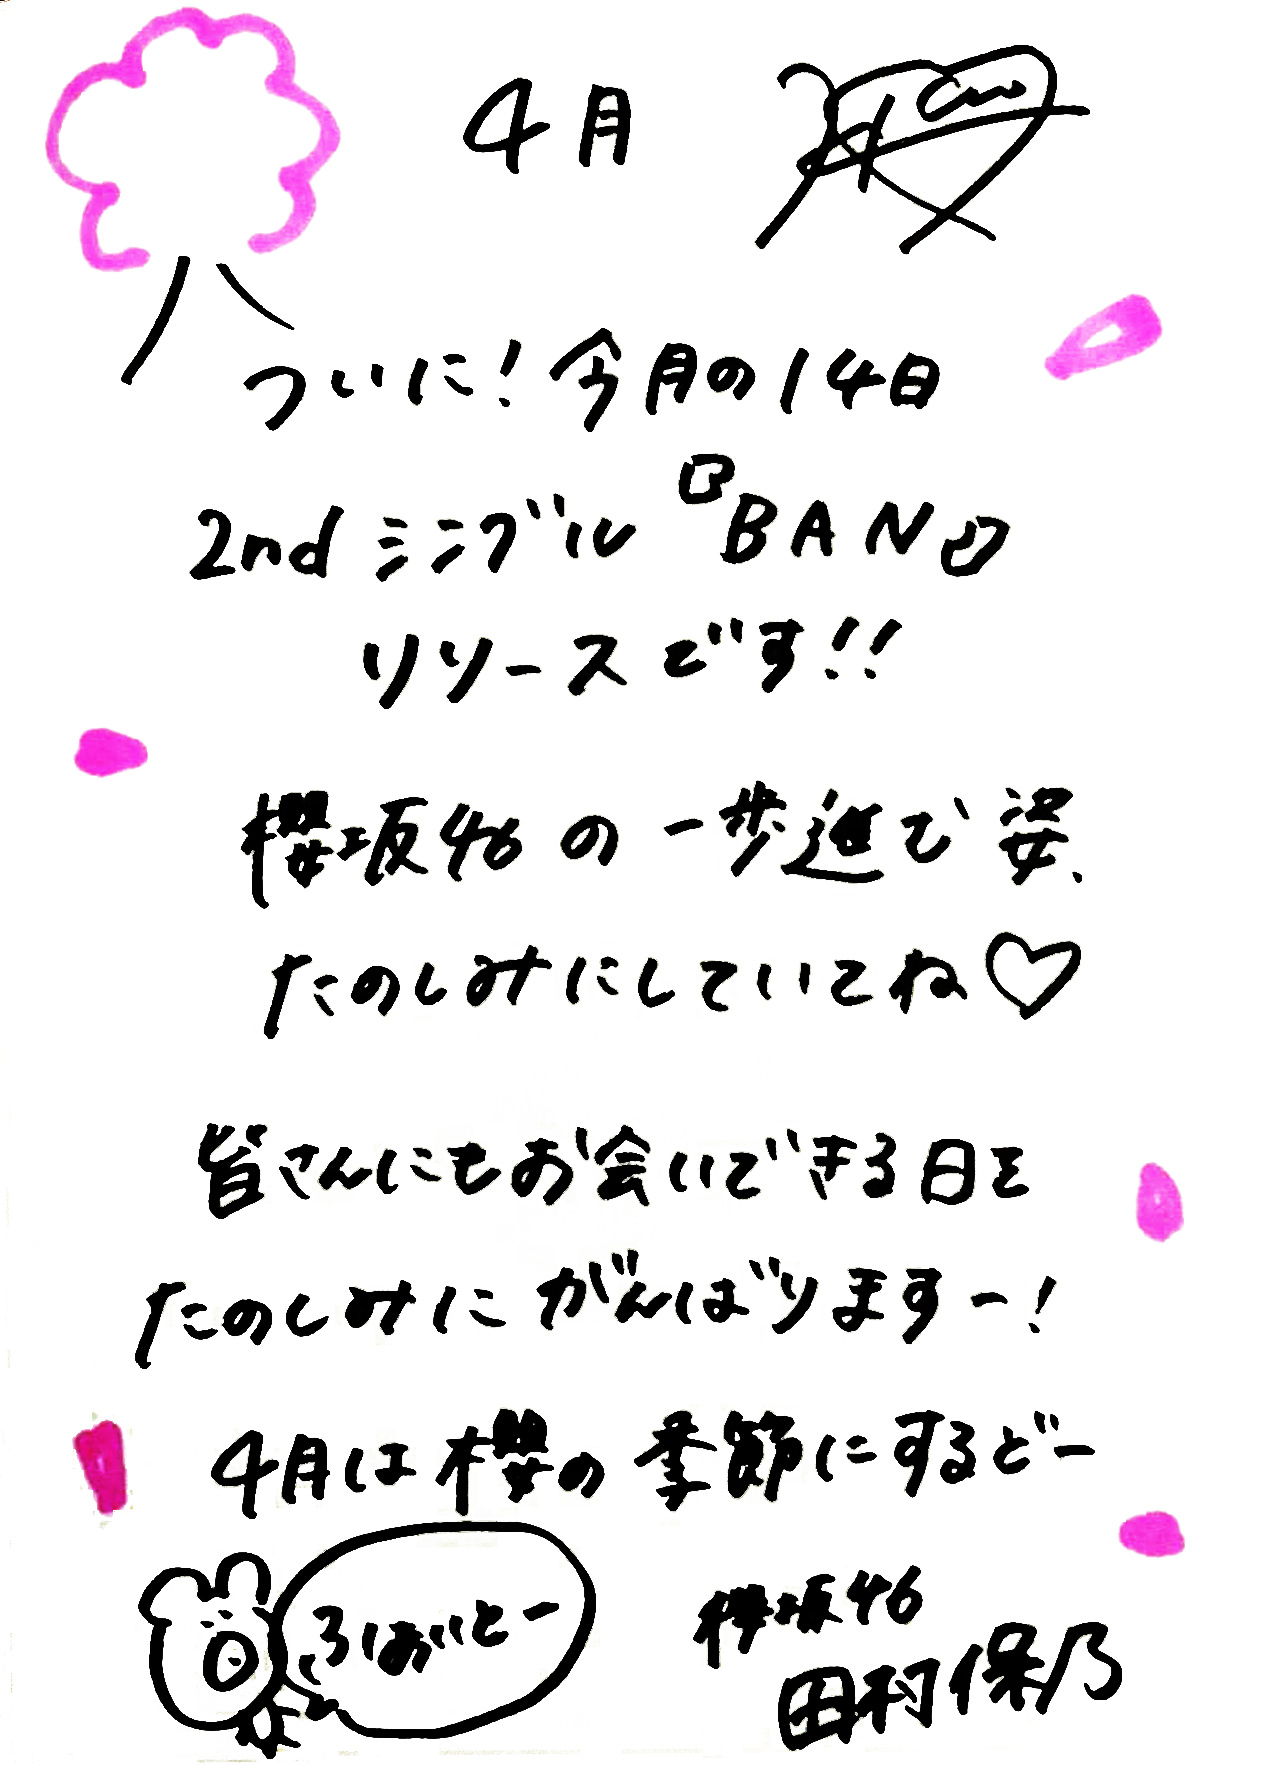 4月
ついに!今月の14日
2ndシングル『BAN』
リリースです!!
櫻坂46の一歩進む姿、
たのしみにしていてね♡
皆さんにもお会いできる日を
たのしみにがんばりますー!
4月は櫻の季節にするどー
ふぁいとー
櫻坂46
田村保乃